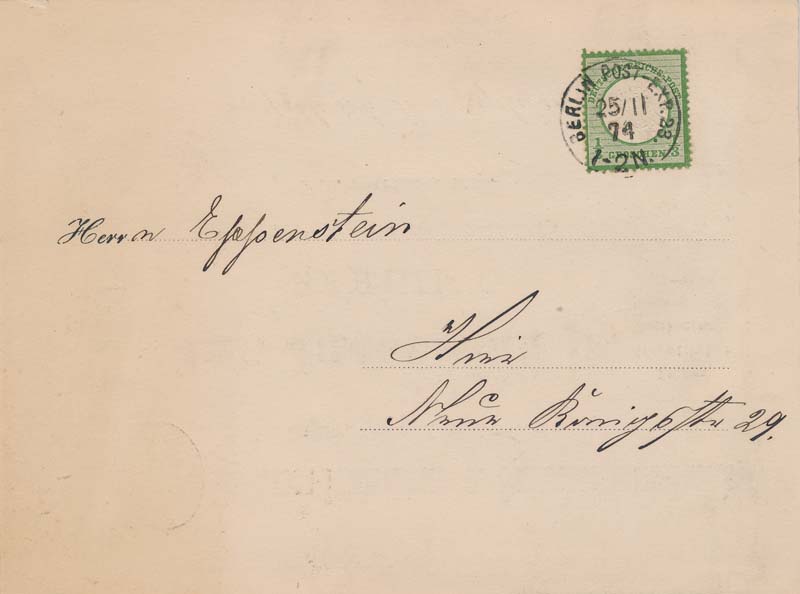 BERLIN POST-EXP. 28.
25/11
74
1-2N.
REICHS-POST
1/3 GROSCHEN 1/3
Herrn Eppenstein
Hier
Neue Königsstr 29.